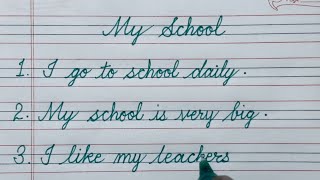 My School
1. I go to school daily.
2. My school is very big.
3. I like my teachers